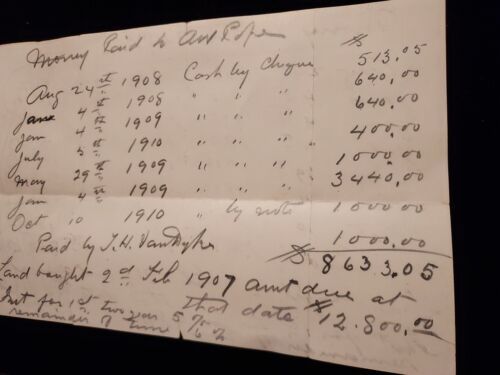 Money Paid to Pope $
Aug 24 1908 Cash by cheque 513.05
June 4th 1908 " " " 640.00
Jan 4th 1909 " " " 640.00
July 5th 1910 " " " 400.00
May 29th 1909 " " " 1000.00
Jan 4th 1909 " " " 3440.00
Oct 10 1910 " by note 1000.00
Paid by J.H. VanDyke 1000.00
$8633.05
Land bought 2d Feb 1907 amt due at
that date $12.800.00
Int for 1st two years 5 %
remainder of time 6 %